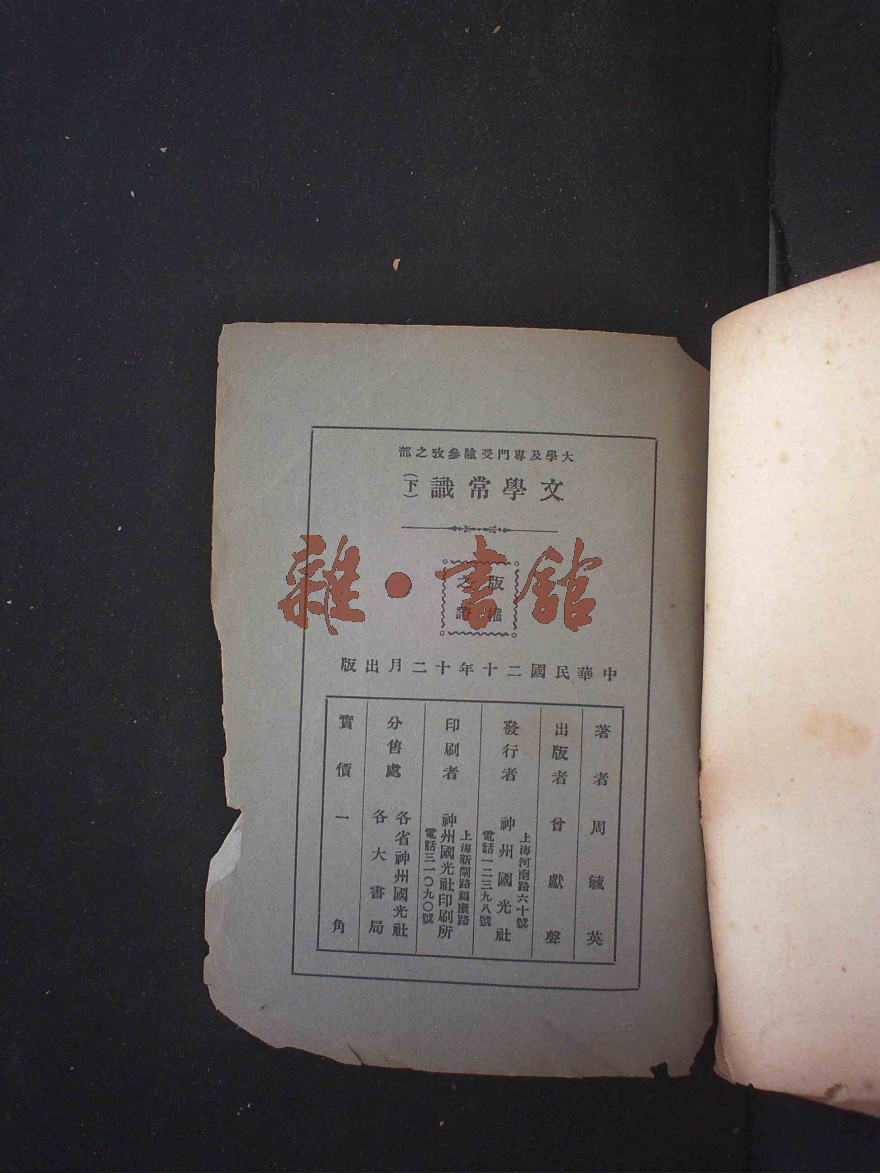 大學及專門受驗參攷之部
文學常識(下)
版權
之證
雜·書館
中華民國二十年十二月出版
著者 周毓英
出版者 曾獻聲
發行者 神州國光社
上海河南路六十號
電話一二三九八號
印刷者 神州國光社印刷所
上海新閘路福康路
電話三一〇九〇號
分售處 各省神州國光社
各大書局
實價一角